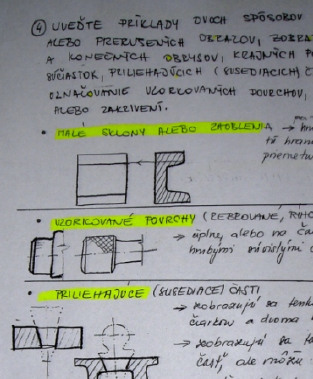 ④ UVEĎTE PRÍKLADY DVOCH SPÔSOBOV
ALEBO PRERUŠENÝCH OBRAZOV,
A KONEČNÝCH OBRYSOV, KRAJNÝCH
SÚČIASTOK, PRILIEHAJÚCICH (SUSEDIACICH)
OZNAČOVANIE VZORKOVANÝCH POVRCHOV,
ALEBO ZAKRIVENÍ.
• MALÉ SKLONY ALEBO ZAOBLENIA →
tá
priemetu
• VZORKOVANÉ POVRCHY (REBROVANÉ,
→ úplne, alebo na
hrubými súvislými
• PRILIEHAJÚCE (SUSEDIACE) ČASTI
→ zobrazujú sa
čiarkou a dvoma
→ zobrazujú sa
časť, ale môžu